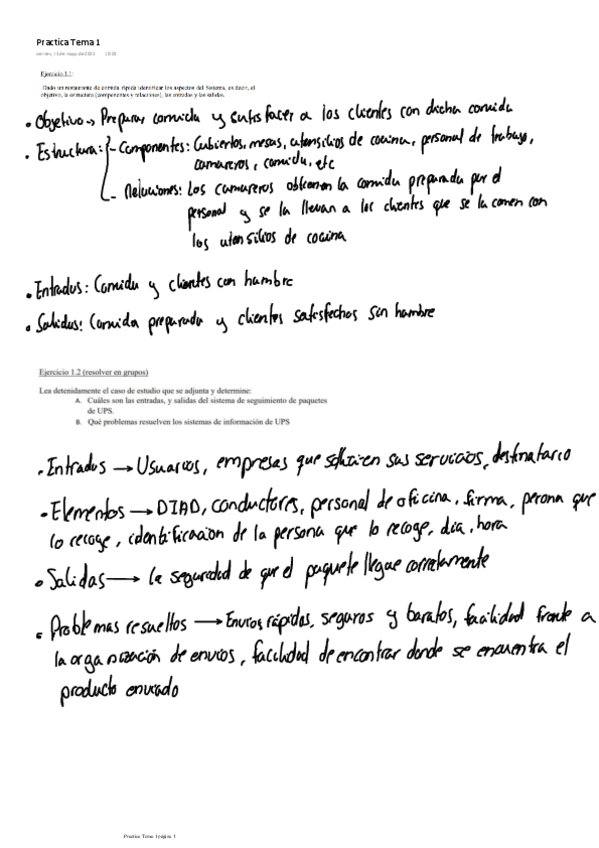 Practica Tema 1
Ejercicio 1.1:
Dado un restaurante de comida rápida identificar los aspectos del Sistema, es decir, el
objetivo, la estructura (componentes y relaciones), las entradas y las salidas.
• Objetivo → Preparar comida y satisfacer a los clientes con dicha comida
• Estructura: - Componentes: Cubiertos, mesas, utensilios de cocina, personal de trabajo,
camareros, comida, etc
- Relaciones: Los camareros obtienen la comida preparada por el
personal y se la llevan a los clientes que se la comen con
los utensilios de cocina
• Entradas: Comida y clientes con hambre
• Salidas: Comida preparada y clientes satisfechos sin hambre
Ejercicio 1.2 (resolver en grupos)
Lea detenidamente el caso de estudio que se adjunta y determine:
A. Cuáles son las entradas, y salidas del sistema de seguimiento de paquetes
de UPS.
B. Qué problemas resuelven los sistemas de información de UPS
• Entradas → Usuarios, empresas que soliciten sus servicios, destinatario
• Elementos → DIAD, conductores, personal de oficina, firma, persona que
lo recoge, identificación de la persona que lo recoge, día, hora
• Salidas → la seguridad de que el paquete llegue correctamente
• Problemas resueltos → Envíos rápidos, seguros y baratos, facilidad frente a
la organización de envíos, facilidad de encontrar donde se encuentra el
producto enviado
Practica Tema 1 página 1